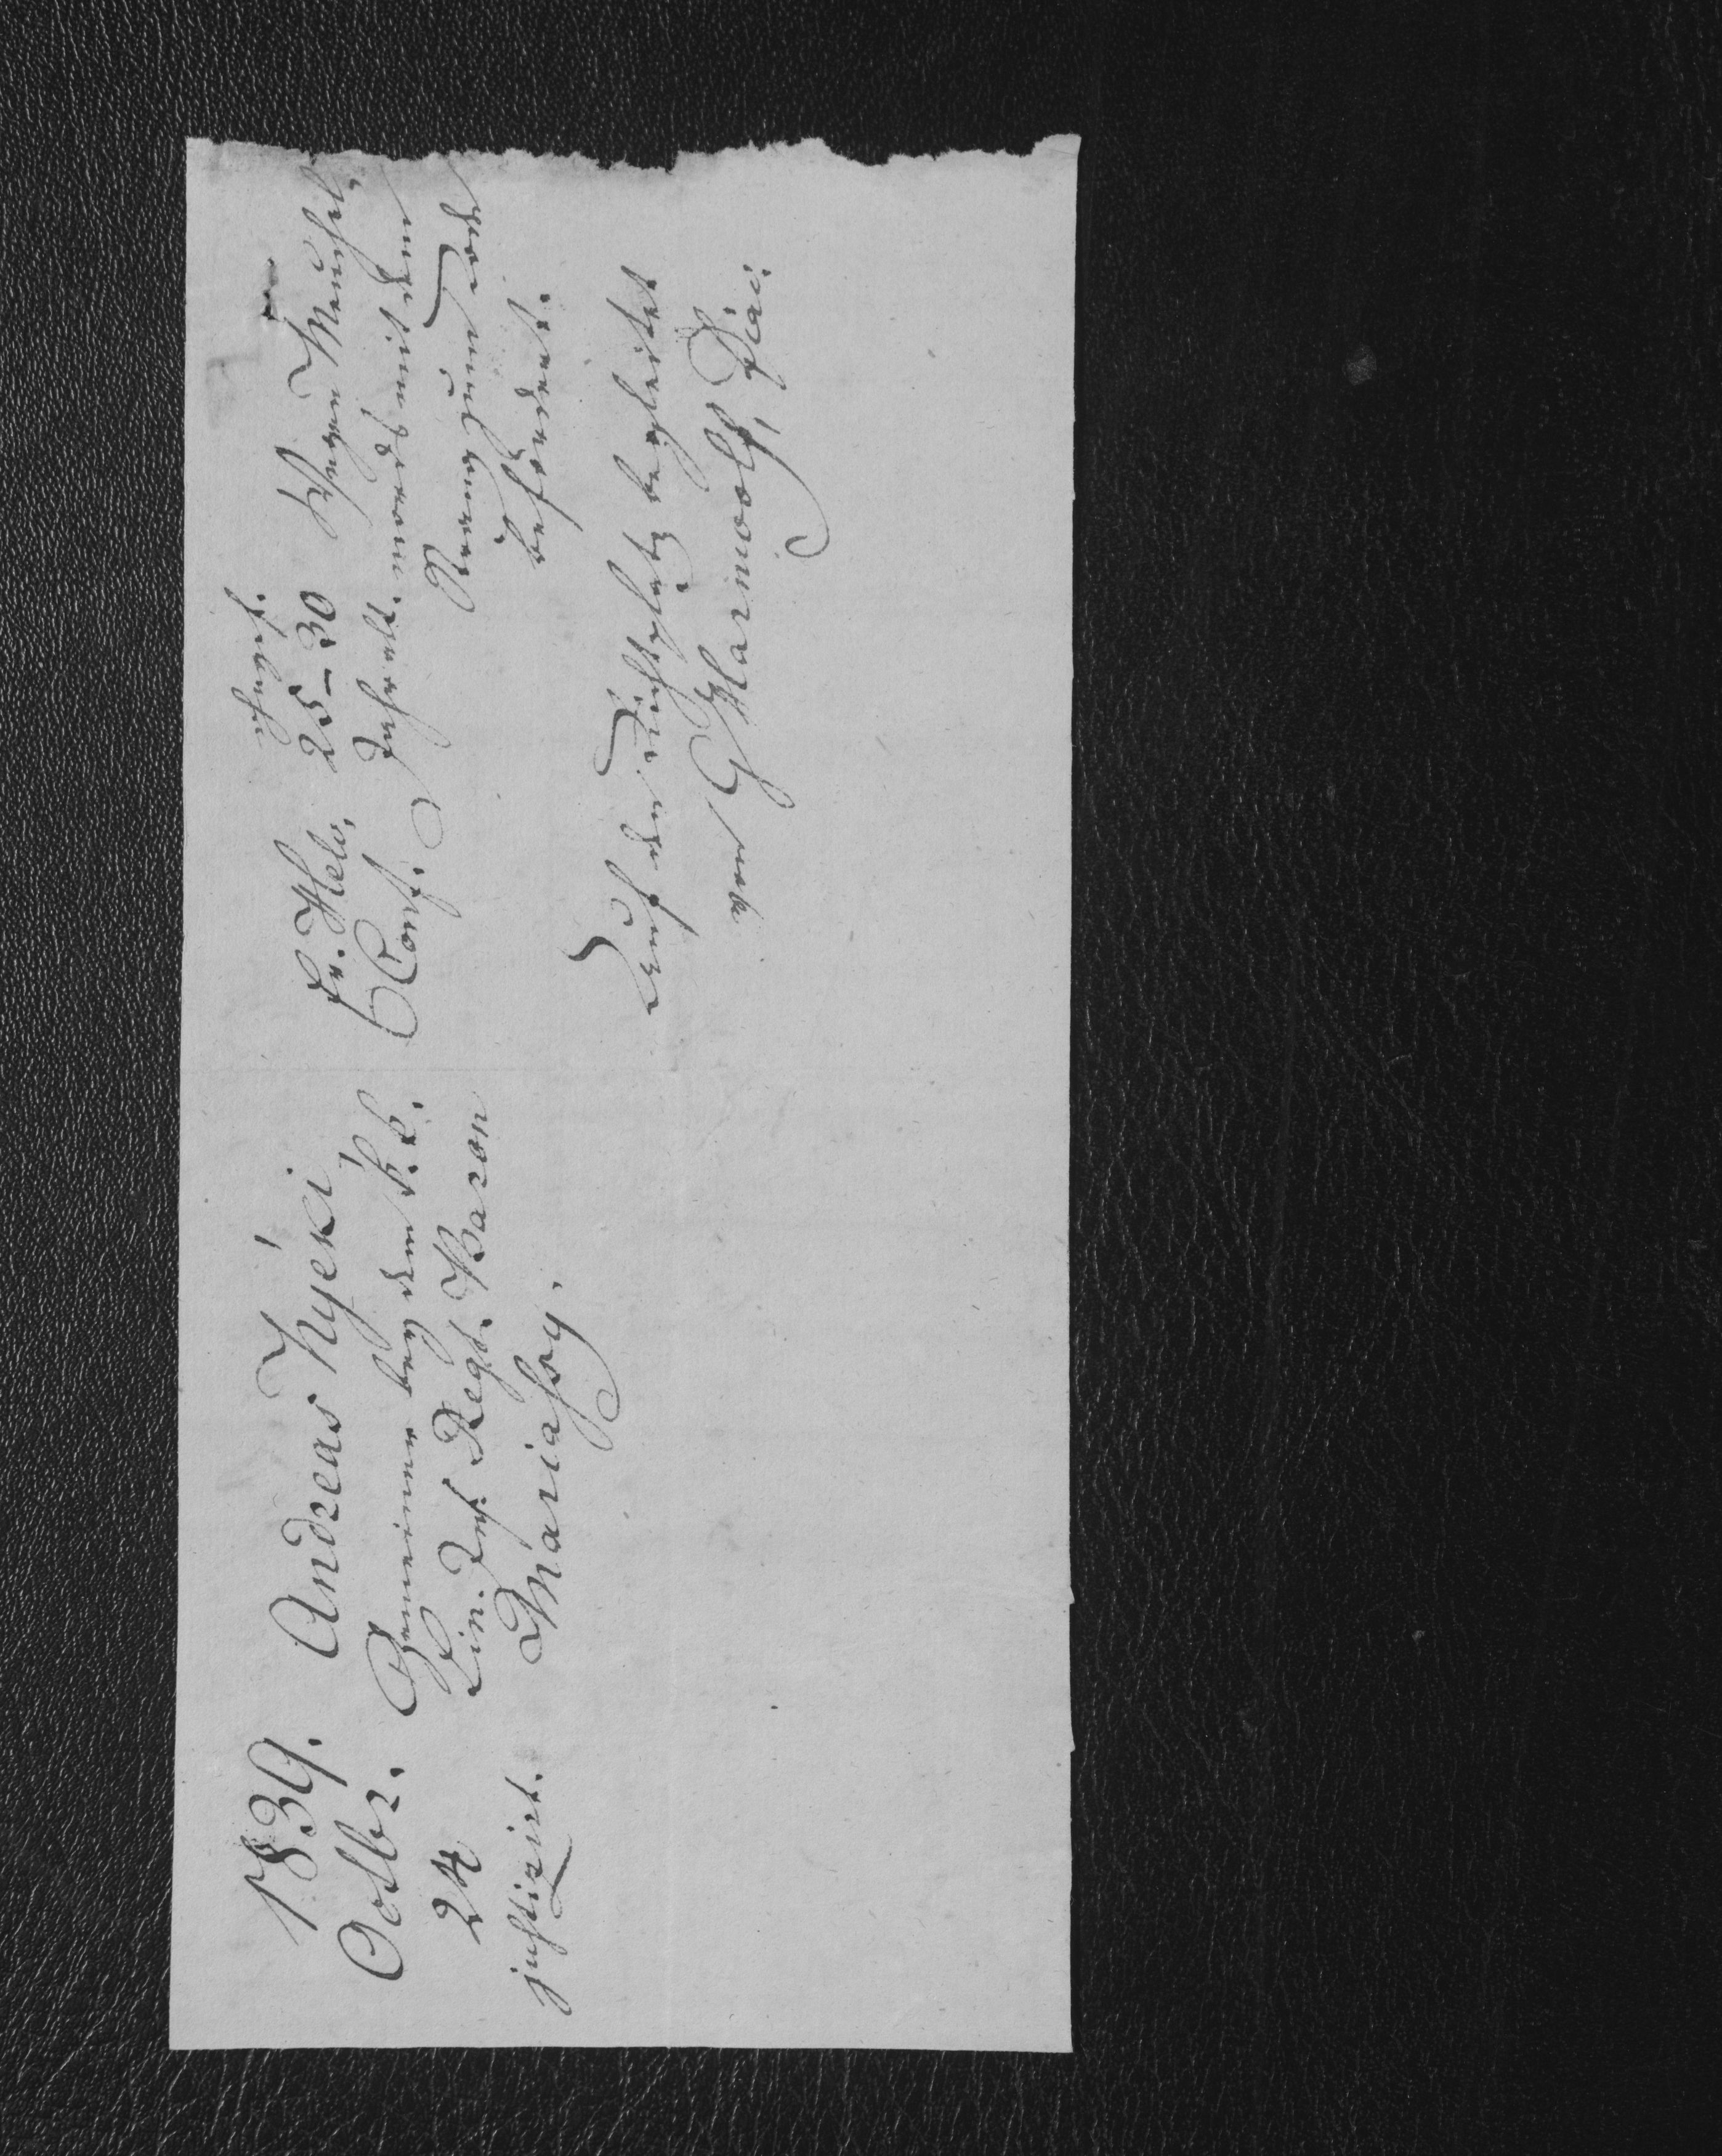 1839.
Octbr.
24
justizirt.
Andreas Nyéki
Gemeiner bey dem k. k.
Lin. Inf. Regt. Baron
Mariassy.
Ev. Helv.
Conf.
ohngef.
25–30
Jahr alt.
Wegen Meuchel-
mords mit dem
Strang zum Tode
befördert.
Auf den Richtplatz begleitet
von G Marmwolf,